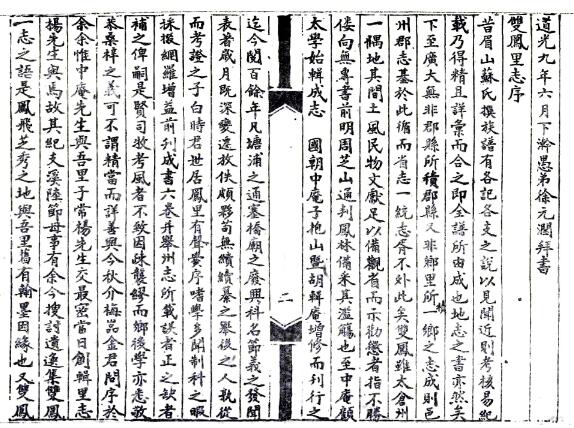 道光九年六月下澣愚弟徐元潤拜書
雙鳳里志序
昔眉山蘇氏撰族譜有各記各支之說以見聞近則考核易紀
載乃得精且詳彙而合之即全譜所由成也地志之書亦然矣
下至廣大無非郡縣所積郡縣又非鄉里所積一鄉之志成則邑
州郡志基於此循而省志一統志胥不外此矣雙鳳雖太倉州
一隅地其間土風民物文獻足以備觀省而示勸懲者指不勝
僂向無專書前明周芝山通判鳳林備采其濫觴也至中庵顧
太學始輯成志 國朝中庵子抱山暨胡輯庵增修而刊行之
迄今閱百餘年凡塘浦之通塞橋廟之廢興科名節義之發聞
表著歲月既深變遷放佚頗夥苟無續纂之舉後之人孰從
而考證之子白時君世居鳳里有聲黌序嗜學多聞制科之暇
採掇網羅增益前刊成書六卷并舉州志所載誤者正之缺者
補之俾嗣是賢司牧考風者不致因疎襲謬而鄉後學亦悉敬
恭桑梓之義可不謂精當而詳善與今秋介梅品金君問序於
余余惟中庵先生與吾里子常楊先生交最密當日創輯里志
楊先生與焉故其紀支溪陸節母事有余今搜討遺逸集雙鳳
一志之語是鳳飛芝秀之地與吾里舊有翰墨因緣也又雙鳳
二